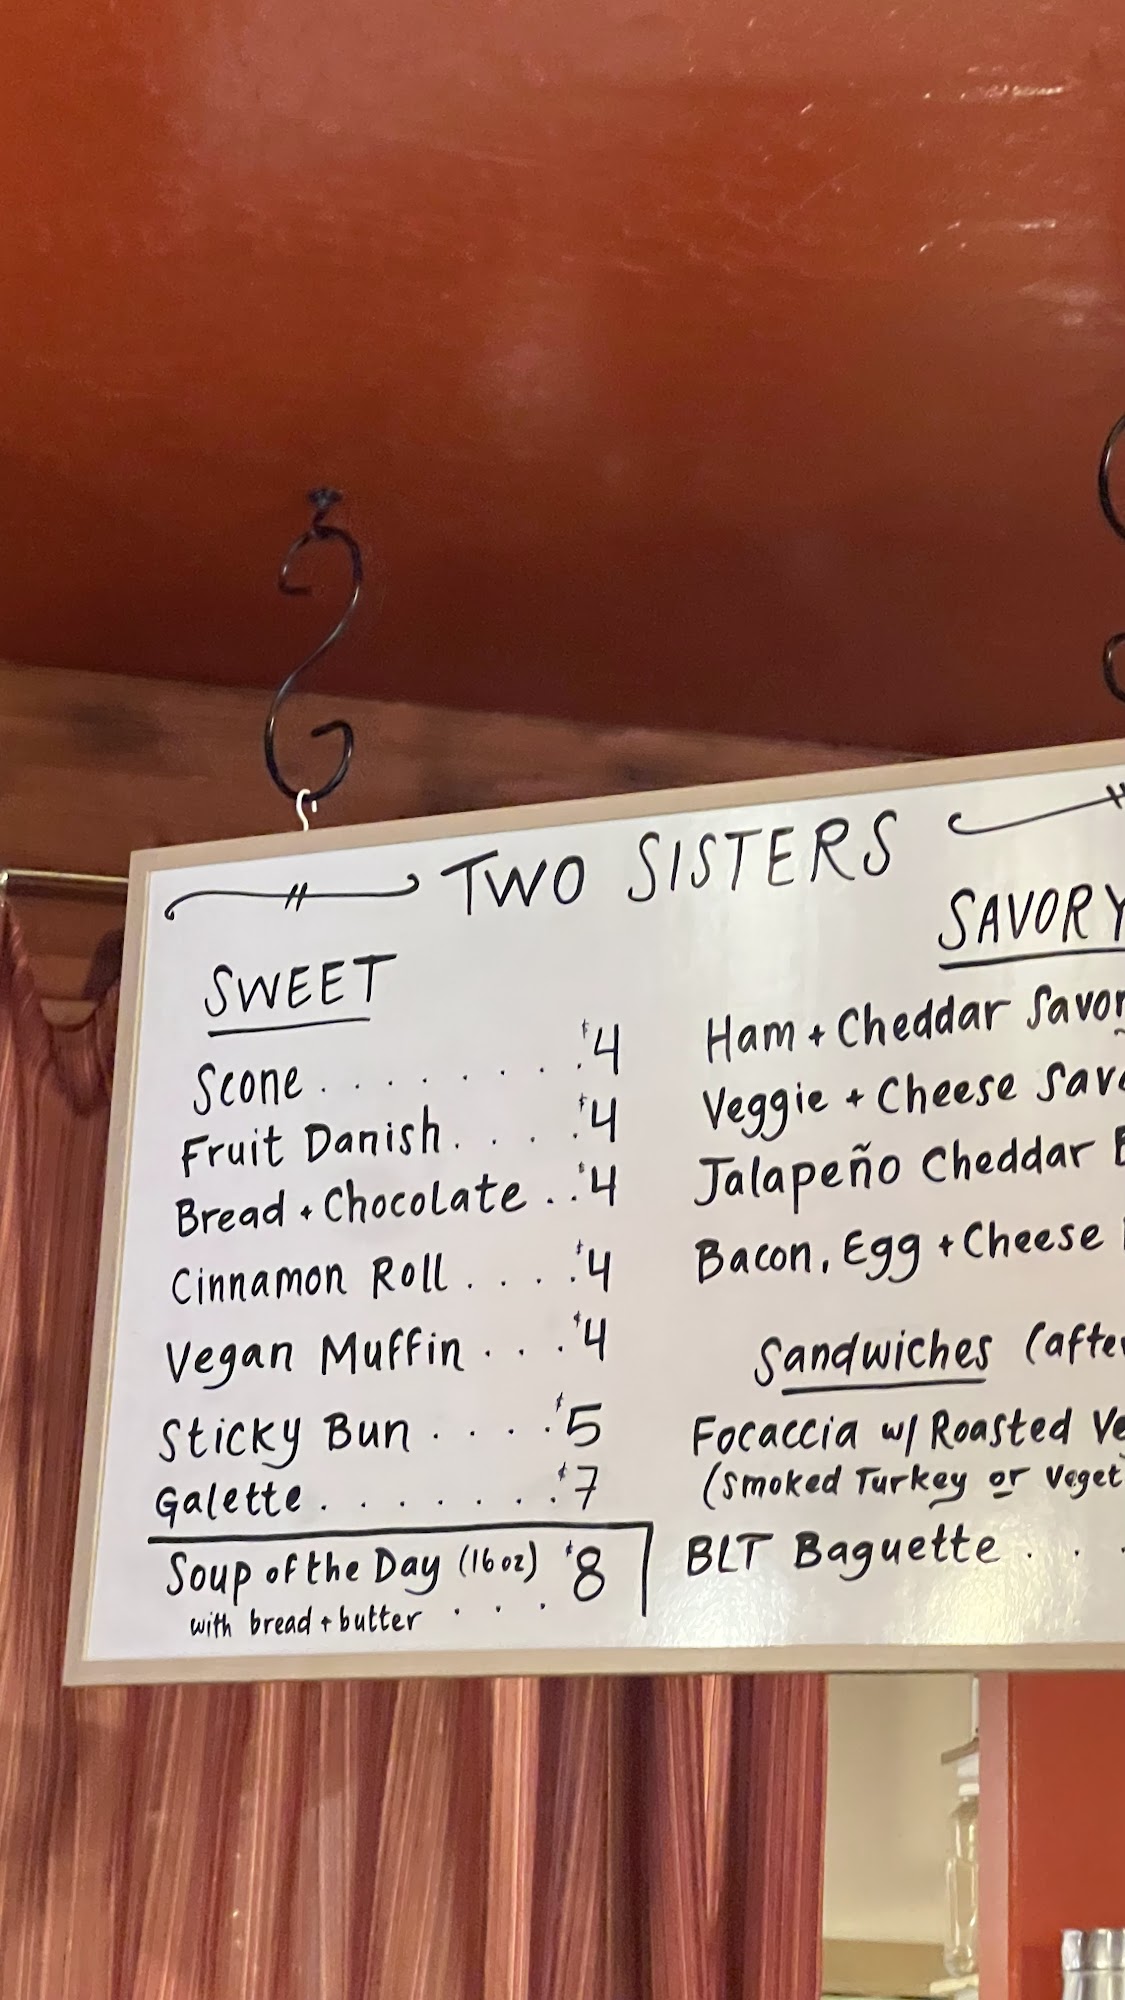 TWO SISTERS
SWEET
Scone . . . . . . . . . $4
Fruit Danish . . . . . $4
Bread + Chocolate . . . $4
Cinnamon Roll . . . . . $4
Vegan Muffin . . . . $4
Sticky Bun . . . . . $5
Galette . . . . . . . . $7
Soup of the Day (16 oz) $8
with bread + butter . . .
SAVORY
Ham + Cheddar
Veggie + Cheese
Jalapeño Cheddar
Bacon, Egg + Cheese
Sandwiches
Focaccia w/ Roasted
(Smoked Turkey or
BLT Baguette . . .